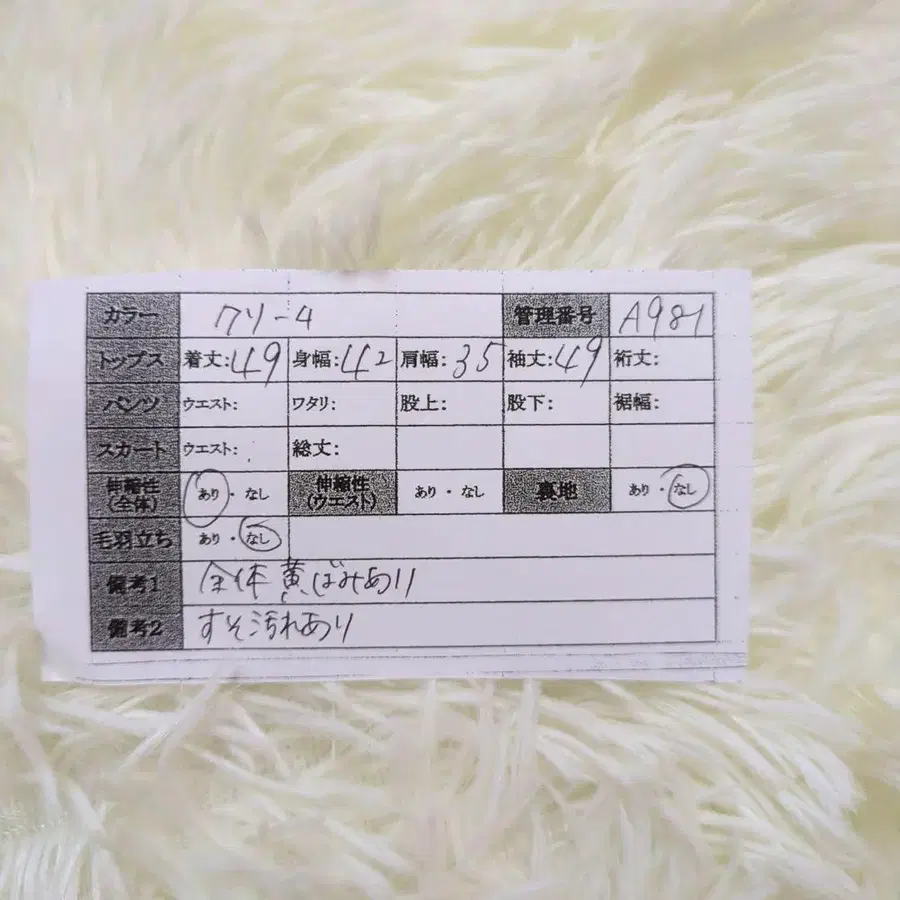 カラー クリーム 管理番号 A981
トップス 着丈:49 身幅:42 肩幅:35 袖丈:49 裄丈:
パンツ ウエスト: ワタリ: 股上: 股下: 裾幅:
スカート ウエスト: 総丈:
伸縮性(全体) あり・なし 伸縮性(ウエスト) あり・なし 裏地 あり・なし
毛羽立ち あり・なし
備考1 全体黄ばみあり
備考2 すそ汚れあり